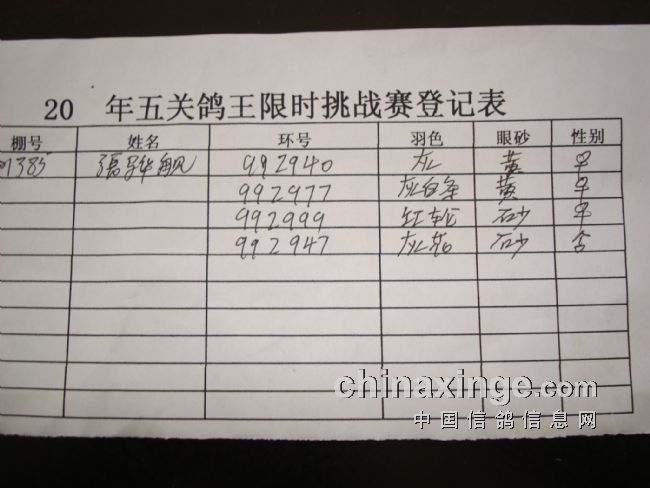 20 年五关鸽王限时挑战赛登记表
棚号 姓名 环号 羽色 眼砂 性别
1385 張 992940 灰 黄 早
992977 灰白条 黄 早
992999 红轮 砂 早
992947 灰花 砂
chinaxinge.com
中国信鸽信息网